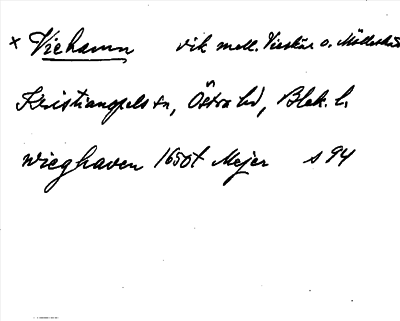 × Viehamn vik mell. Vieskär o. Mölleskär
Kristianopels sn, Östra hd, Blek. l.
Wieghaven 1650t Mejer s 94